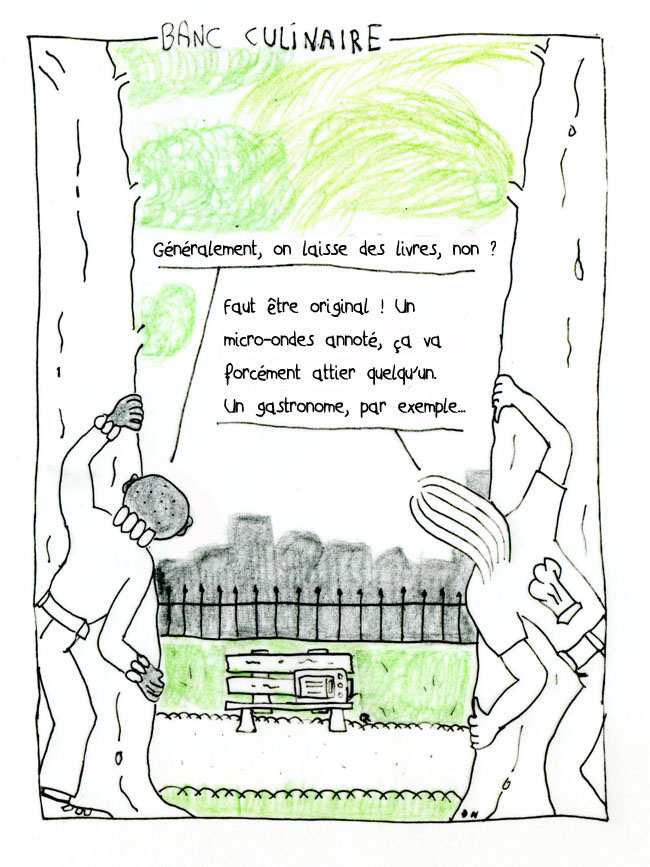 BANC CULINAIRE
Généralement, on laisse des livres, non ?
Faut être original ! Un
micro-ondes annoté, ça va
forcément attier quelqu'un.
Un gastronome, par exemple...
DN